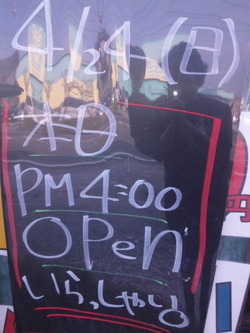 4/24 (日)
本日
PM 4:00
OPen
いらっしゃい
円